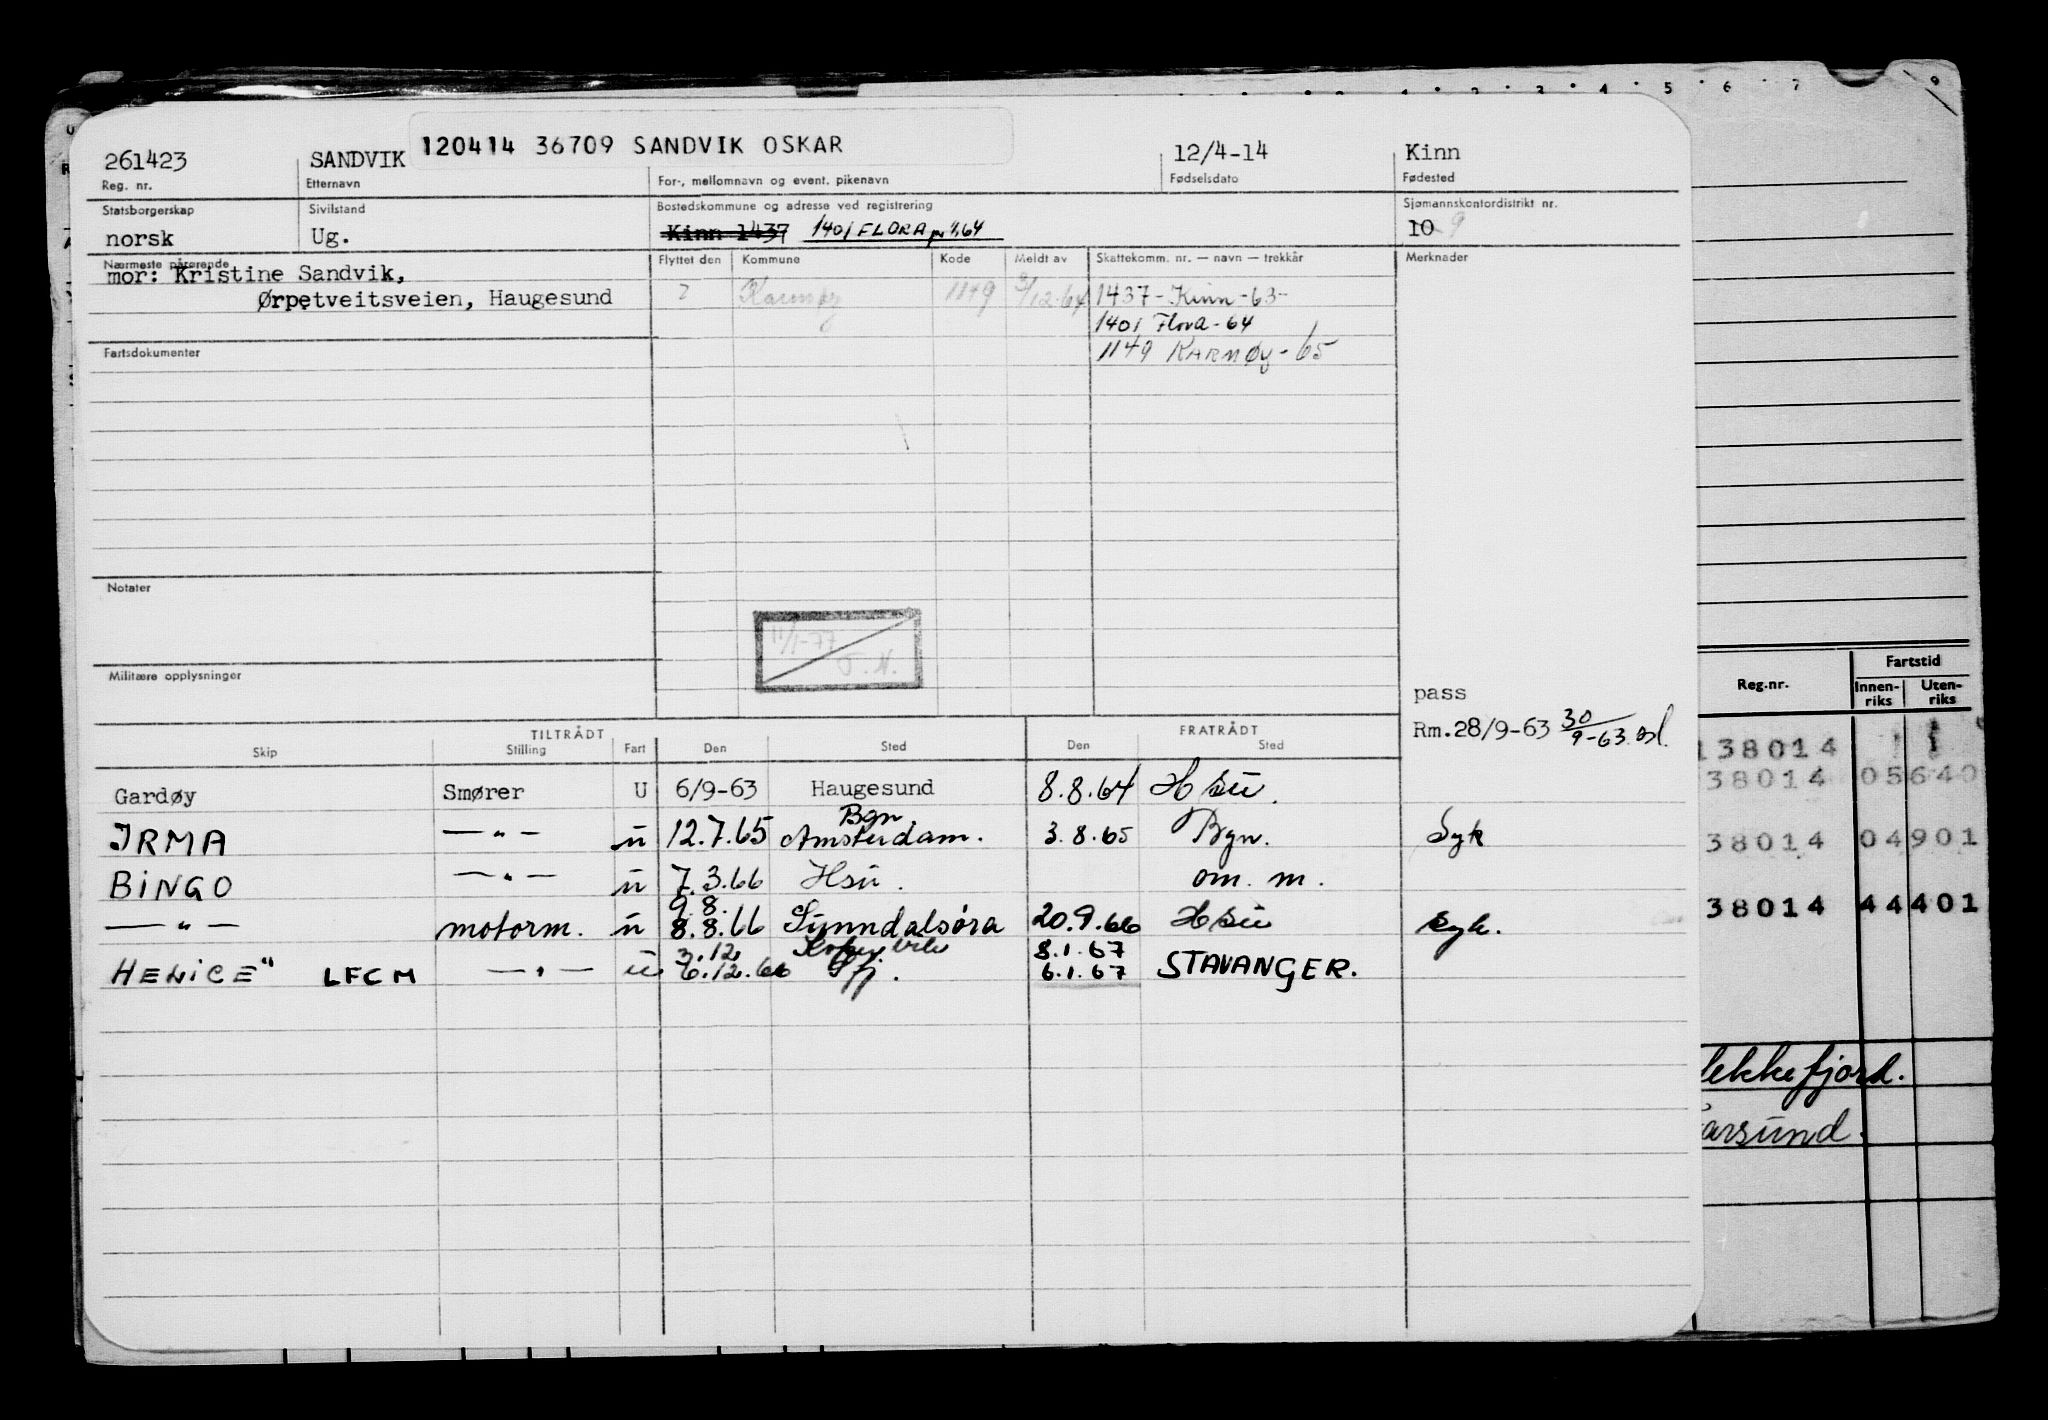 261423 SANDVIK 120414 36709 SANDVIK OSKAR 12/4-14 Kinn
Reg. nr. Etternavn For-, mellomnavn og event. pikenavn Fødselsdato Fødested
Statsborgerskap Sivilstand Bostedskommune og adresse ved registrering Sjømannskontordistrikt nr.
norsk Ug. Kinn 1437 1401 FLORA 1/1.64 10 9
Nærmeste pårørende Flyttet den Kommune Kode Meldt av Skattekomm. nr. — navn — trekkår Merknader
mor: Kristine Sandvik,
Ørpetveitsveien, Haugesund ? Karmøy 1149 9/12.64 1437 - Kinn - 63 -
1401 Flora - 64
Fartsdokumenter 1149 KARMØY - 65
Notater
11/1-77
Militære opplysninger
pass
Rm.28/9-63 30/9-63
TILTRÅDT FRATRÅDT
Skip Stilling Fart Den Sted Den Sted
Gardøy Smører U 6/9-63 Haugesund 8.8.64 Hsu.
Bgn.
IRMA — " — u 12.7.65 Amsterdam. 3.8.65 Bgn. Syk
BINGO — " — u 7.3.66 Hsu. om. m.
9.8.
— " — motorm. u 8.8.66 Sunndalsøra 20.9.66 Hsu syk.
3.12. 8.1.67
HENICE" LFCM — " — u 6.12.66 6.1.67 STAVANGER.
1 2 3 4 5 6 7 9
Reg.nr. Fartstid
Innen-riks Uten-riks
138014
38014 05640
38014 04901
38014 44401
lekkefjord.
arsund.